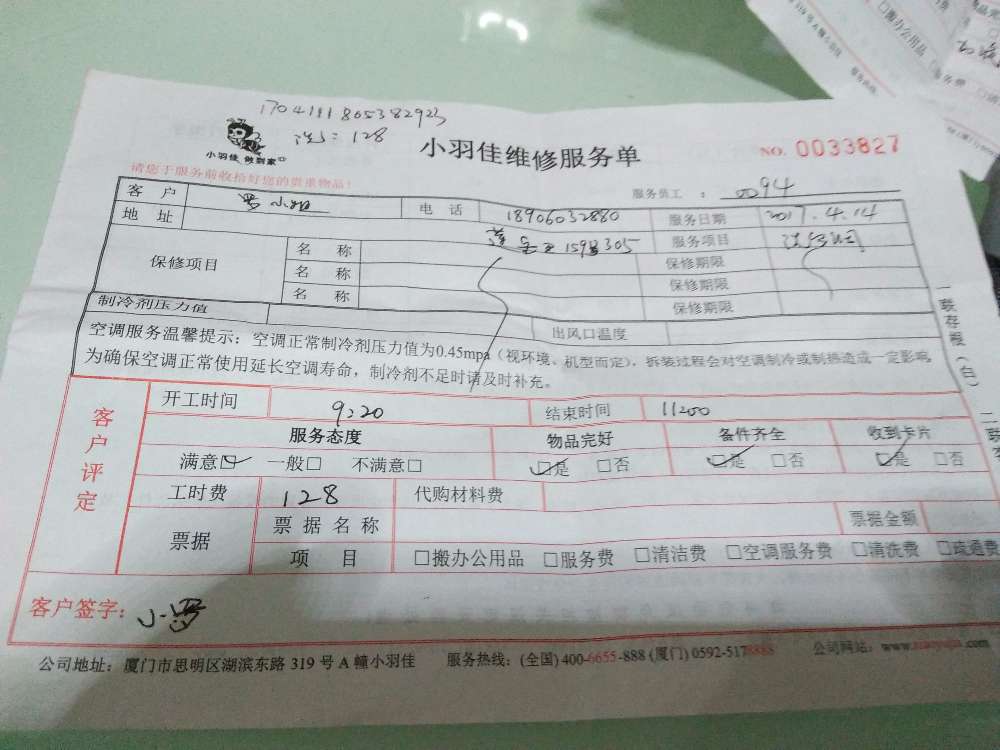 1704111865382923
洗: 128
小羽佳 做到家
小羽佳维修服务单
NO. 0033827
请您于服务前收拾好您的贵重物品!
服务员工 : 0094
客 户 罗小姐 电 话 18906032880 服务日期 2017.4.14
地 址 服务项目
保修项目 名 称 保修期限
名 称 保修期限
名 称 保修期限
制冷剂压力值 出风口温度
空调服务温馨提示: 空调正常制冷剂压力值为0.45mpa (视环境、机型而定), 拆装过程会对空调制冷或制热造成一定影响,
为确保空调正常使用延长空调寿命, 制冷剂不足时请及时补充。
一联存根(白)
客户评定
开工时间 9:20 结束时间 11:00
服务态度 物品完好 备件齐全 收到卡片
满意☑ 一般□ 不满意□ ☑是 □否 ☑是 □否 ☑是 □否
工时费 128 代购材料费
票据 票 据 名 称 票据金额
项 目 □搬办公用品 □服务费 □清洁费 □空调服务费 □清洗费 □疏通费
客户签字: 小罗
公司地址: 厦门市思明区湖滨东路 319 号 A 幢小羽佳 服务热线: (全国) 400-6655-888 (厦门) 0592-5178888 公司网站: www.xiaoyujia.com